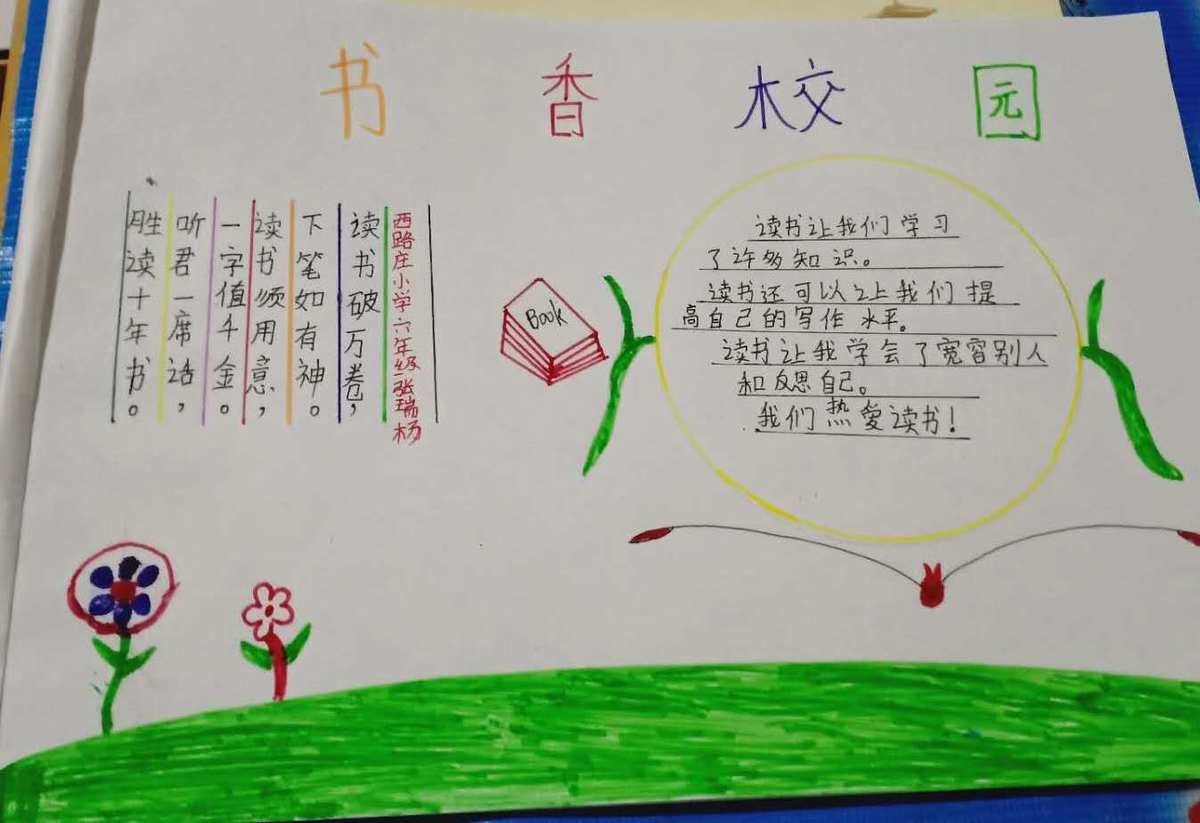 书香校园
西路庄小学六年级张瑞杨
读书破万卷，
下笔如有神。
读书须用意，
一字值千金。
听君一席话，
胜读十年书。
Book
读书让我们学习
了许多知识。
读书还可以让我们提
高自己的写作水平。
读书让我学会了宽容别人
和反思自己。
我们热爱读书！